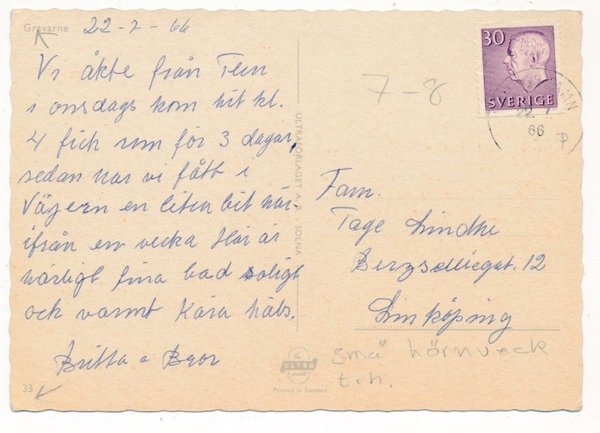 Gravarne 22-7-66
Vi åkte från Tem
i onsdags kom hit kl.
4 fick rum för 3 dagar,
sedan har vi fått i
Väjern en liten bit här-
ifrån en vecka Här är
härligt fina bad soligt
och varmt Kära häls.
Britta o Bror
33
ULTRAFÖRLAGET A.B. SOLNA
ULTRA
Printed in Sweden
7-8
30
SVERIGE
22. 7
66
Fam.
Tage Lindhe
Berzeliigat. 12
Linköping
små hörnveck
t.h.